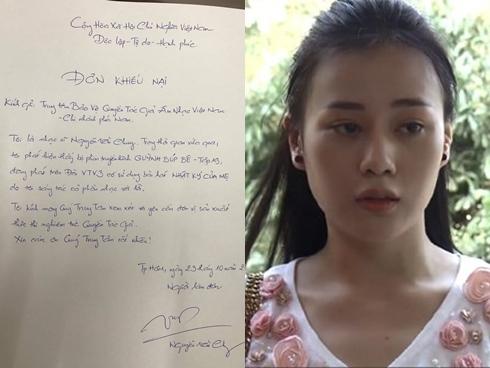 Cộng Hòa Xã Hội Chủ Nghĩa Việt Nam
Độc lập - Tự do - Hạnh phúc
ĐƠN KHIẾU NẠI
Kính gửi: Trung tâm Bảo Vệ Quyền Tác Giả Âm Nhạc Việt Nam
- Chi nhánh phía Nam.
Tôi là nhạc sĩ Nguyễn Văn Chung. Trong thời gian vừa qua,
tôi phát hiện bộ phim truyền hình QUỲNH BÚP BÊ - Tập 13,
đang phát trên Đài VTV3 có sử dụng bài hát NHẬT KÝ CỦA MẸ
do tôi sáng tác cả phần nhạc và lời.
Tôi kính mong Quý Trung Tâm xem xét và yêu cầu đơn vị sản xuất
thực thi nghiêm túc Quyền Tác Giả.
Xin cảm ơn Quý Trung Tâm rất nhiều!
Tp HCM, ngày 23 tháng 10 năm 2
Người làm đơn
Nguyễn Văn Ch